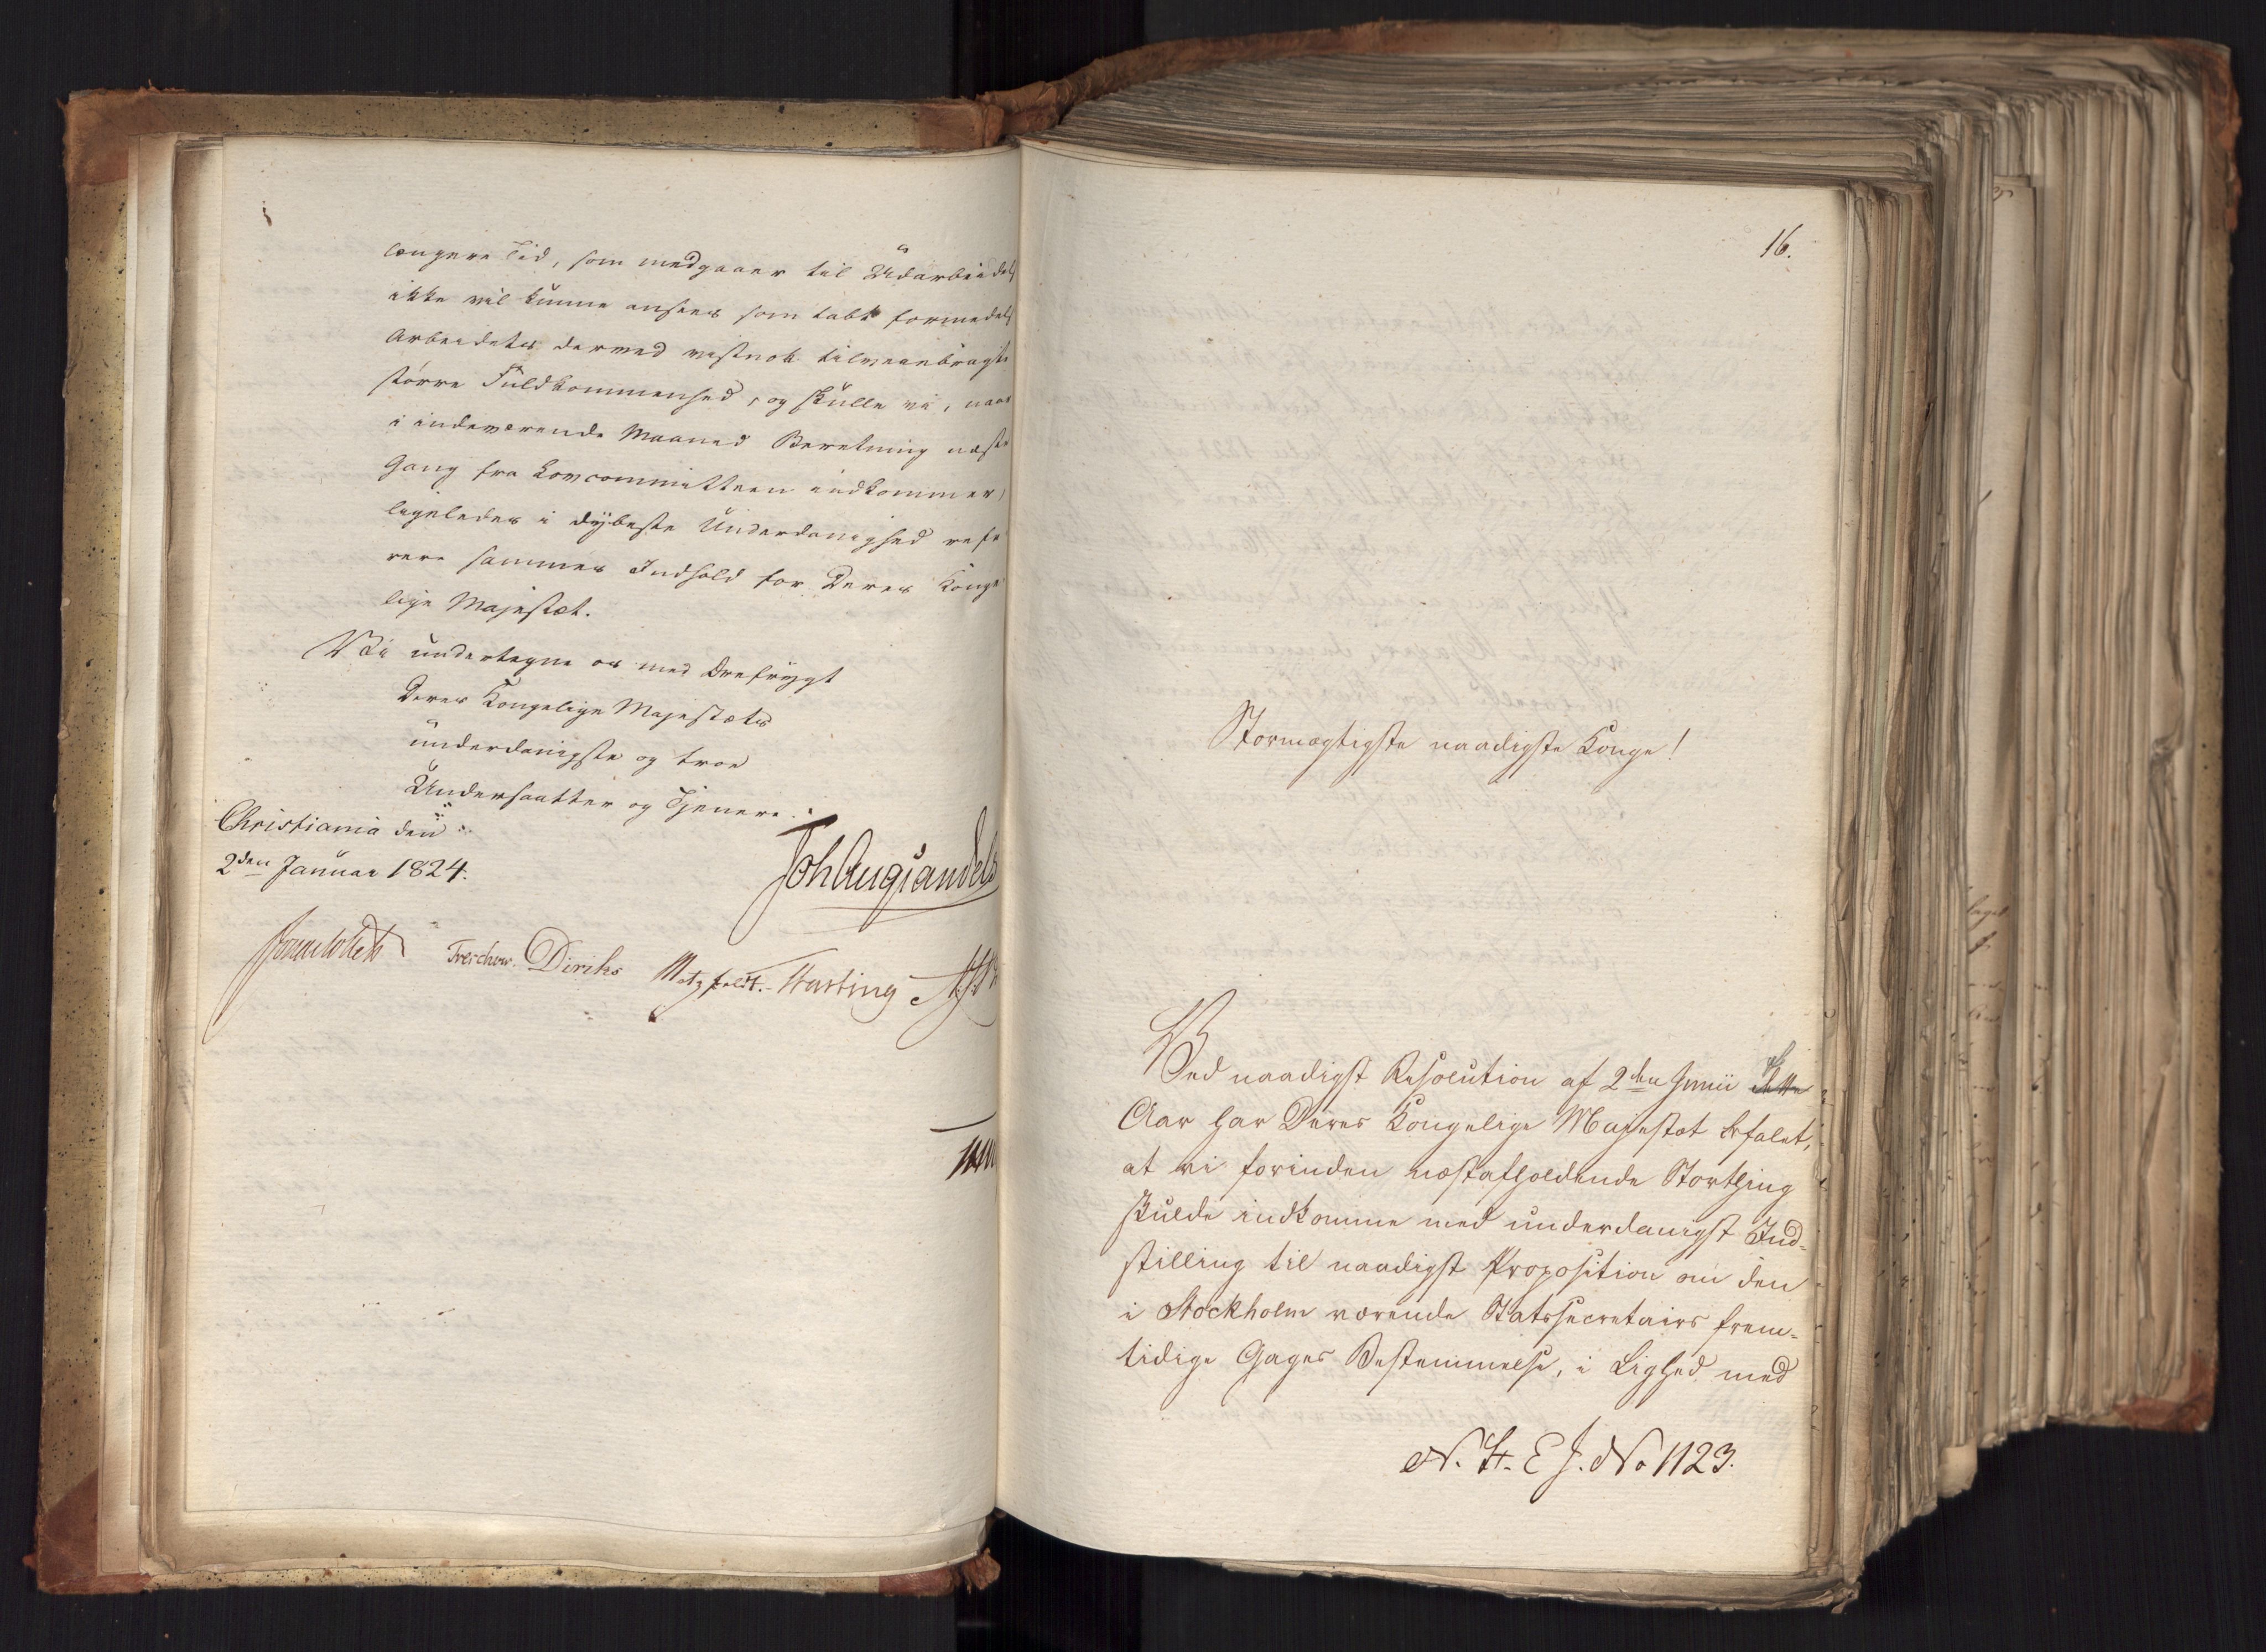 længere Tid, som medgaaer til Udarbeidels
ikke vil kunne ansees som tabt formedelst
Arbeidets dermed vistnok tilveiebragte
større Fuldkommenhed, og skulle vi, naar
i indeværende Maaned Beretning næste
Gang fra Lovcommitteen indkommer,
ligeledes i dybeste Underdanighed refe
rere sammes Indhold for Deres Konge
lige Majestæt.
Vi undertegne os med Ærefrygt
Deres Kongelige Majestæts
underdanigste og troe
Undersaatter og Tjenere.
Christiania den
2den Januar 1824.
Joh Aug Sandels
Treschow. Diriks Motzfeldt. Hasting
16.
Stormægtigste naadigste Konge!
Ved naadigst Resolution af 2den Junii
Aar har Deres Kongelige Majestæt befalet,
at vi forinden næstafholdende Storthing
skulde indkomme med underdanigst Ind-
stilling til naadigst Proposition om den
i Stockholm værende Statssecretairs frem-
tidige Gages Bestemmelse, i Lighed med
N. H. E J. No 1123.